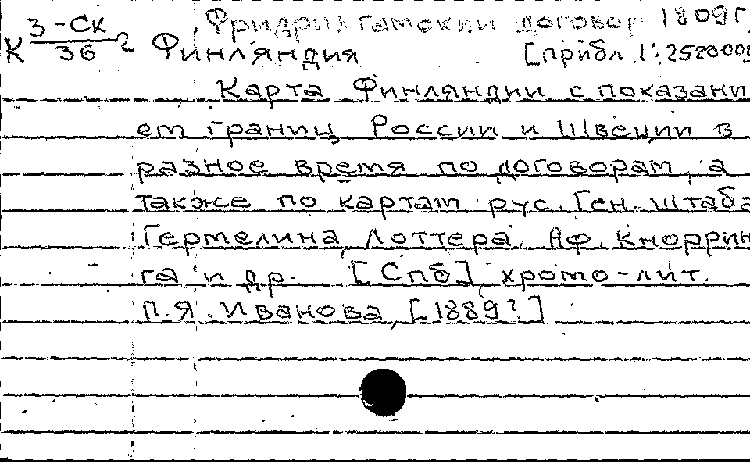 Фридрихгамский договор 1809г.
К 3-Ск/36 Финляндия [прибл. 1:2520000
Карта Финляндии с показани
ем границ России и Швеции в
разное время по договорам, а
также по картам рус. Ген. штаба
Гермелина, Лоттера, Аф. Кноррин
га и др. [Спб], хромо-лит.
П.Я. Иванова, [1889?]